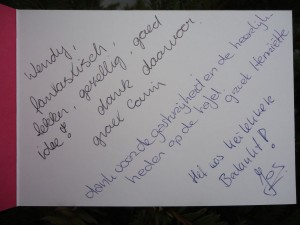 Wendy,
fantastisch,
lekker, gezellig, goed
idee! dank daarvoor.
groet
dank voor de gastvrijheid en de heerlijk-
heden op de tafel. groet Henriëtte
Het was
Bedankt!
Jos